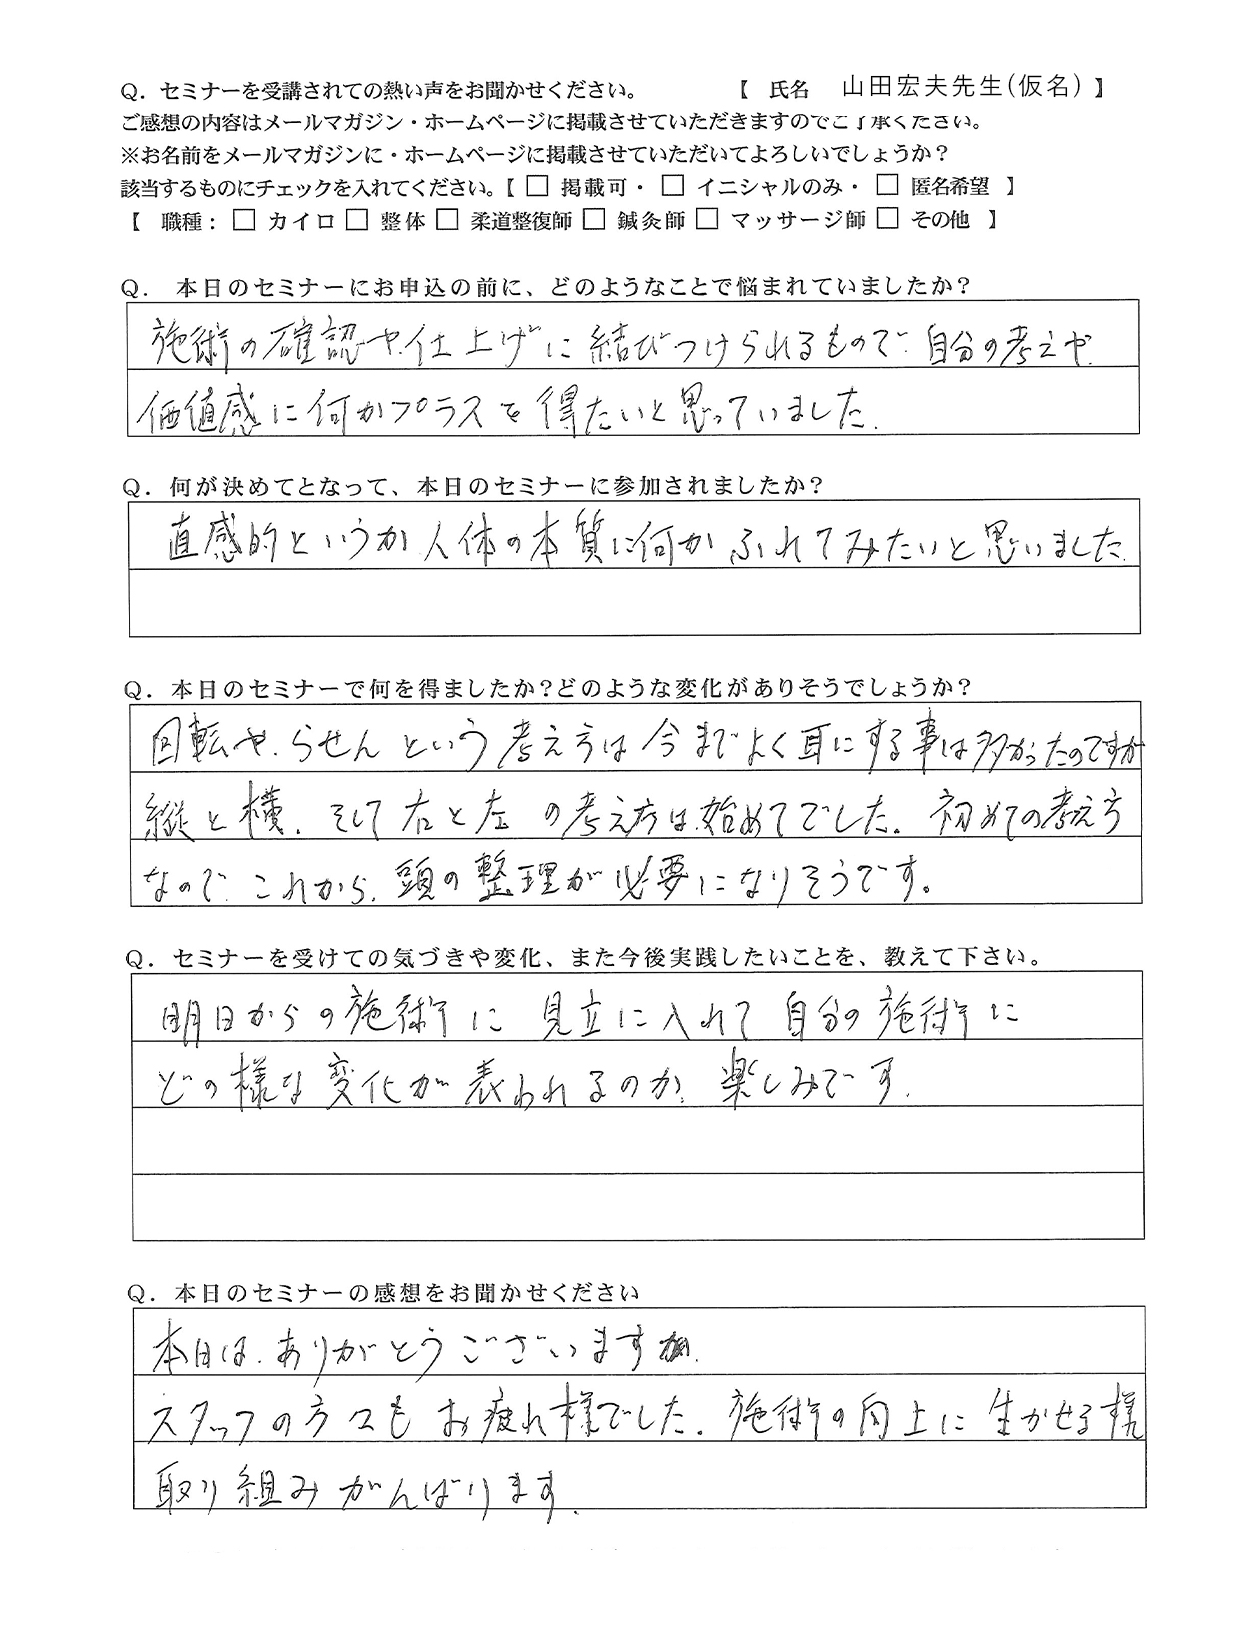 Q. セミナーを受講されての熱い声をお聞かせください。 【 氏名 山田宏夫先生(仮名) 】
ご感想の内容はメールマガジン・ホームページに掲載させていただきますのでご了承ください。
※お名前をメールマガジンに・ホームページに掲載させていただいてよろしいでしょうか？
該当するものにチェックを入れてください。【 □ 掲載可・ □ イニシャルのみ・ □ 匿名希望 】
【 職種： □ カイロ □ 整体 □ 柔道整復師 □ 鍼灸師 □ マッサージ師 □ その他 】
Q. 本日のセミナーにお申込の前に、どのようなことで悩まれていましたか？
施術の確認や、仕上げに結びつけられるもので、自分の考えや、
価値感に何かプラスを得たいと思っていました。
Q. 何が決めてとなって、本日のセミナーに参加されましたか？
直感的というか、人体の本質に何かふれてみたいと思いました。
Q. 本日のセミナーで何を得ましたか？どのような変化がありそうでしょうか？
回転や、らせんという考え方は今までよく耳にする事は多かったのですが
縦と横、そして右と左の考え方は始めてでした。初めての考え方
なので、これから、頭の整理が必要になりそうです。
Q. セミナーを受けての気づきや変化、また今後実践したいことを、教えて下さい。
明日からの施術に見立に入れて自分の施術に
どの様な変化が表われるのか、楽しみです。
Q. 本日のセミナーの感想をお聞かせください
本日は、ありがとうございます
スタッフの方々もお疲れ様でした。施術の向上に生かせる様
取り組みがんばります。